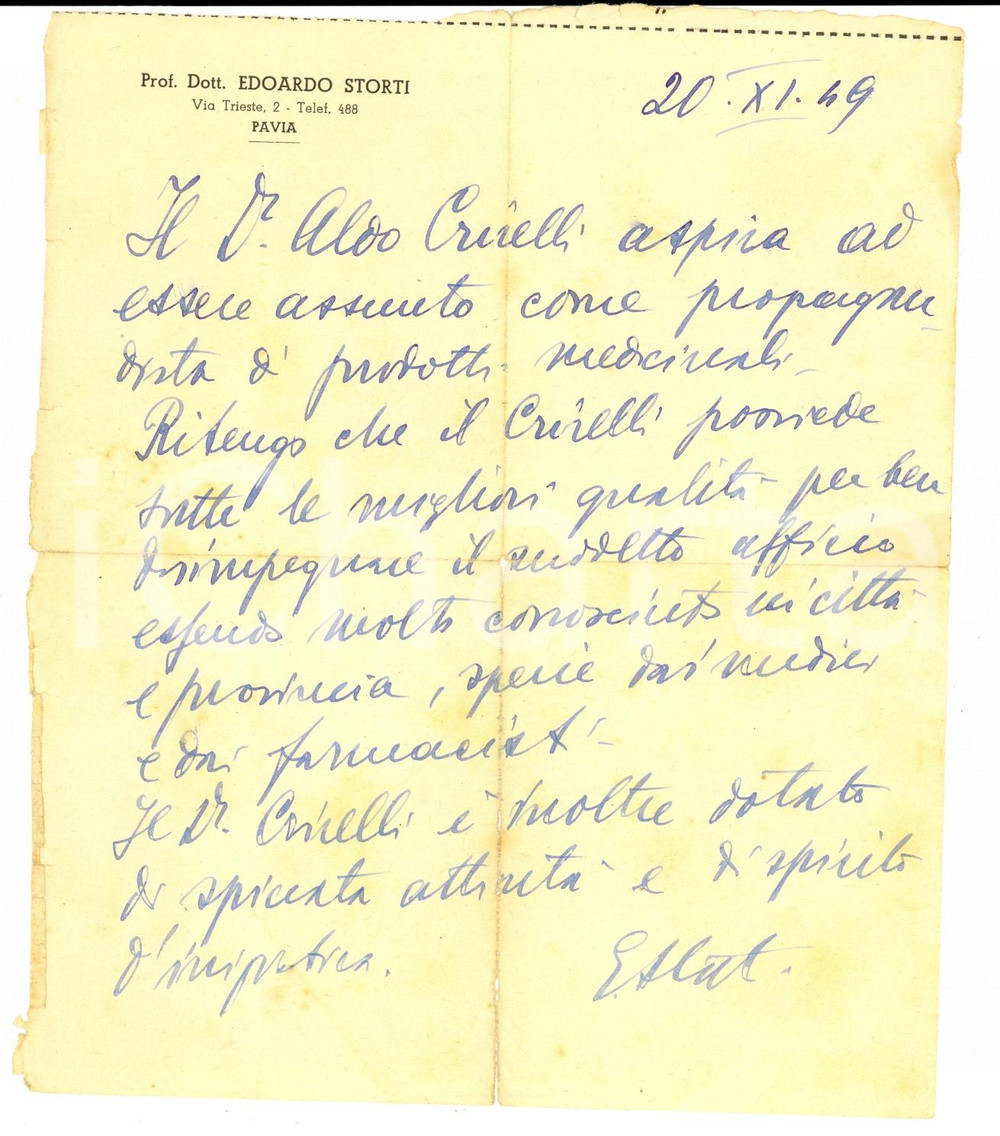 Prof. Dott. EDOARDO STORTI
Via Trieste, 2 - Telef. 488
PAVIA
20.XI.49
Il Dr. Aldo Crivelli aspira ad
essere assunto come propagan-
dista di prodotti medicinali.
Ritengo che il Crivelli possiede
tutte le migliori qualità per ben
disimpegnare il suddetto ufficio
essendo molto conosciuto in città
e provincia, specie dai medici
e dai farmacisti.
Il Dr. Crivelli è inoltre dotato
di spiccata attività e di spirito
d'iniziativa.
iCharta